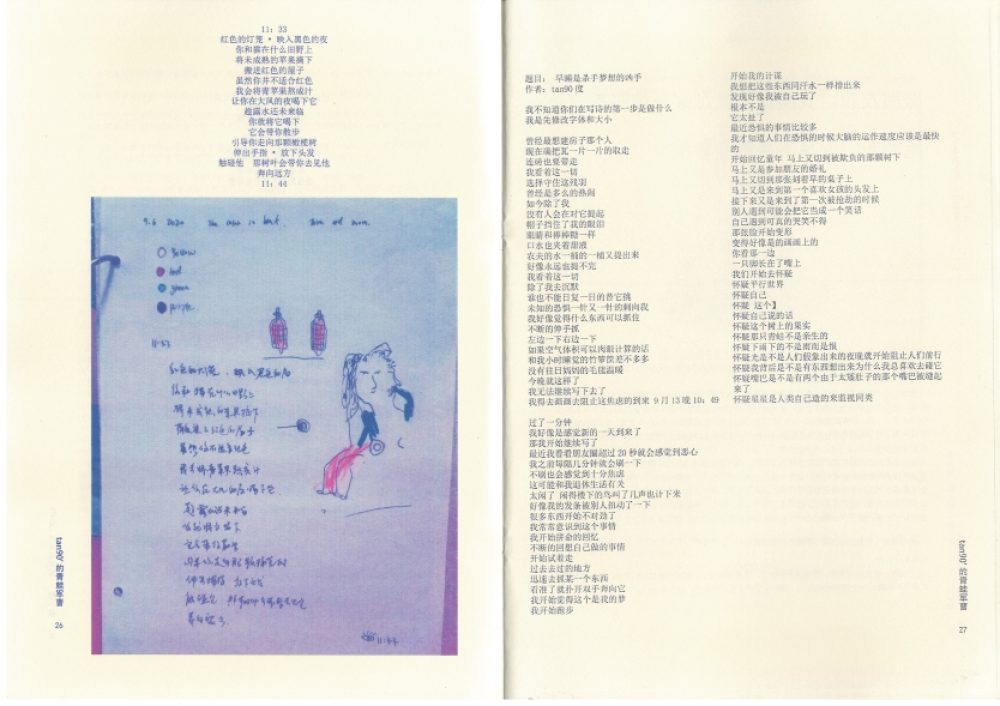 11: 33
红色的灯笼 • 映入黑色的夜
你和猫在什么田野上
将未成熟的苹果摘下
搬进红色的屋子
虽然你并不适合红色
我会将青苹果熬成汁
让你在大风的夜喝下它
趁露水还未来临
你就将它喝下
它会带你散步
引导你走向那颗橄榄树
伸出手指 • 放下头发
触碰他 那树叶会带你去见他
奔向远方
11: 44
9.6 2020
yellow
red
green
purple
11:33
11:44
tan90°的青蛙军曹
26
题目： 早睡是杀手梦想的凶手
作者：tan90度
我不知道你们在写诗的第一步是做什么
我是先修改字体和大小
曾经最想建房子那个人
现在端把瓦一片一片的取走
连砖也要带走
我看着这一切
选择守住这残羽
曾经是多么的热闹
如今除了我
没有人会在对它提起
帽子挡住了我的眼泪
眼睛和棒棒糖一样
口水也夹着甜液
农夫的水一桶的一桶又提出来
好像永远也提不完
我看着这一切
除了我去沉默
谁也不能日复一日的替它挑
未知的恐惧一针又一针的刺向我
我好像觉得什么东西可以抓住
不断的伸手抓
左边一下右边一下
如果空气体积可以肉眼计算的话
和我小时睡觉的竹箩筐差不多多
没有往日妈妈的毛毯温暖
今晚就这样了
我无法继续写下去了
我得去画画去阻止这焦虑的到来 9 月 13 晚 10：49
过了一分钟
我好像是感觉新的一天到来了
那我开始继续写了
最近我看看朋友圈超过 20 秒就会感觉到恶心
我之前每隔几分钟就会刷一下
不刷也会感觉到十分焦虑
这可能和我退体生活有关
太闲了 闲得楼下的鸟叫了几声也计下来
好像我的发条被别人扭动了一下
很多东西开始不对劲了
我常常意识到这个事情
我开始拼命的回忆
不断的回想自己做的事情
开始试着走
过去去过的地方
迅速去抓某一个东西
看准了就扑开双手奔向它
我开始觉得这个是我的梦
我开始跑步
开始我的计谋
我想把这些东西同汗水一样排出来
发现好像我被自己玩了
根本不是
它太扯了
最近恐惧的事情比较多
我才知道人们在恐惧的时候大脑的运作速度应该是最快
的
开始回忆童年 马上又切到被欺负的那颗树下
马上又是参加朋友的婚礼
马上又切到那张刻着早的桌子上
马上又是来到第一个喜欢女孩的头发上
接下来又是来到了第一次被抢劫的时候
别人遇到可能会把它当成一个笑话
自己遇到可真的哭笑不得
那张脸开始变形
变得好像是的画画上的
你看那一边
一只脚长在了嘴上
我们开始去怀疑
怀疑平行世界
怀疑自己
怀疑 这个】
怀疑自己说的话
怀疑这个树上的果实
怀疑那只青蛙不是亲生的
怀疑下雨下的不是雨而是恨
怀疑光是不是人们假象出来的夜晚就开始阻止人们前行
怀疑我背后是不是有东西想出来为什么我总喜欢去碰它
怀疑嘴巴是不是有两个由于太矮肚子的那个嘴巴被缝起
来了
怀疑星星是人类自己造的来监视同类
tan90°的青蛙军曹
27